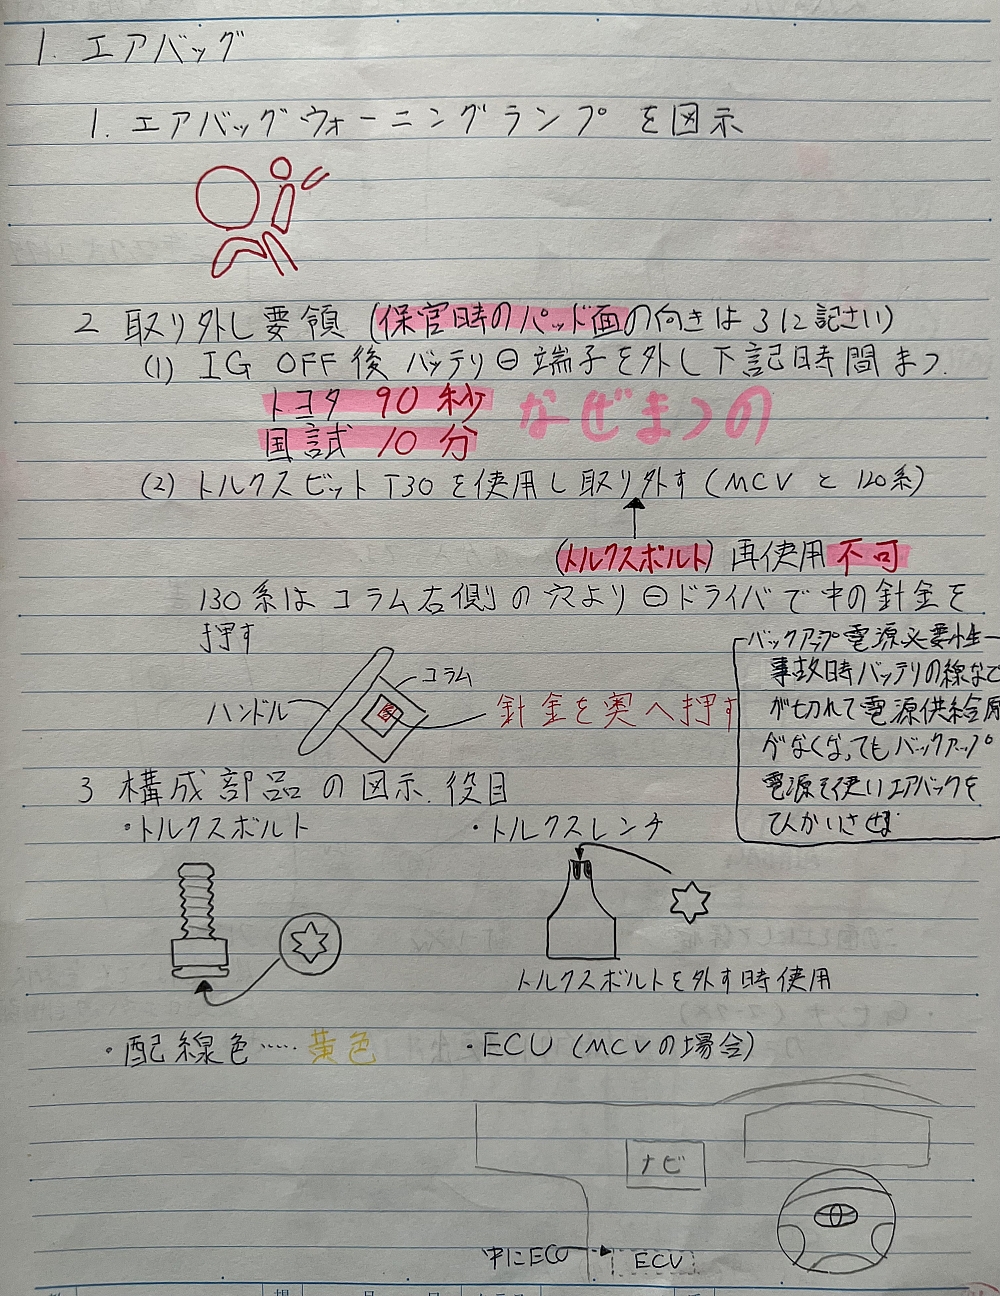 1. エアバッグ
1. エアバッグウォーニングランプ を図示
2 取り外し要領 (保官時のパッド面の向きは3に記さい)
(1) IG OFF 後 バッテリ⊖端子を外し下記時間まつ.
トヨタ 90秒
国試 10分
なぜまつの
(2) トルクスビットT30を使用し取り外す (MCV と 120系)
(トルクスボルト) 再使用 不可
130系は コラム右側の穴より⊖ドライバで中の針金を
押す
コラム
ハンドル
針金を奥へ押す
バックアップ電源必要性
事故時バッテリの線など
が切れて電源供給
がなくなってもバックアップ
電源を使いエアバックを
てんかいさせ
3 構成部品の図示.役目
・トルクスボルト
・トルクスレンチ
トルクスボルトを外す時使用
・配線色‥‥ 黄色
・ECU (MCVの場合)
ナビ
中にECU
ECU